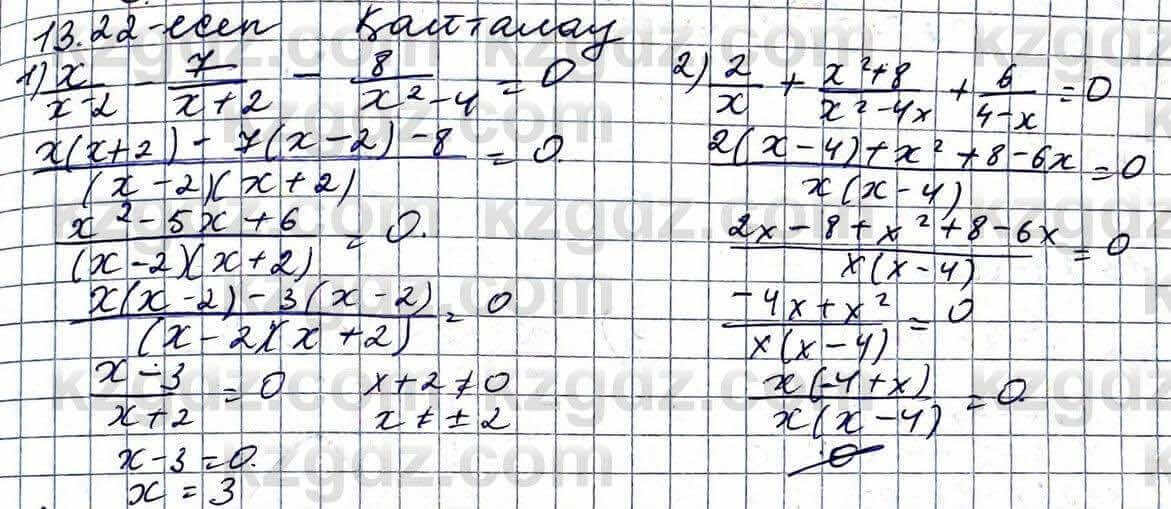 13.22-есеп Қайталау
1) x/(x-2) - 7/(x+2) - 8/(x²-4) = 0
(x(x+2) - 7(x-2) - 8)/((x-2)(x+2)) = 0.
(x²-5x+6)/((x-2)(x+2)) = 0.
(x(x-2) - 3(x-2))/((x-2)(x+2)) = 0
(x-3)/(x+2) = 0 x+2≠0
x≠±2
x-3=0.
x=3
2) 2/x + (x²+8)/(x²-4x) + 6/(4-x) = 0
(2(x-4)+x²+8-6x)/(x(x-4)) = 0
(2x-8+x²+8-6x)/(x(x-4)) = 0
(-4x+x²)/(x(x-4)) = 0
(x(-4+x))/(x(x-4)) = 0.
kzgdz.com